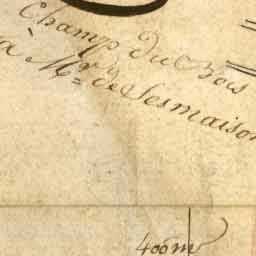 Champ du Bois
à Mr. de Sesmaison
400m